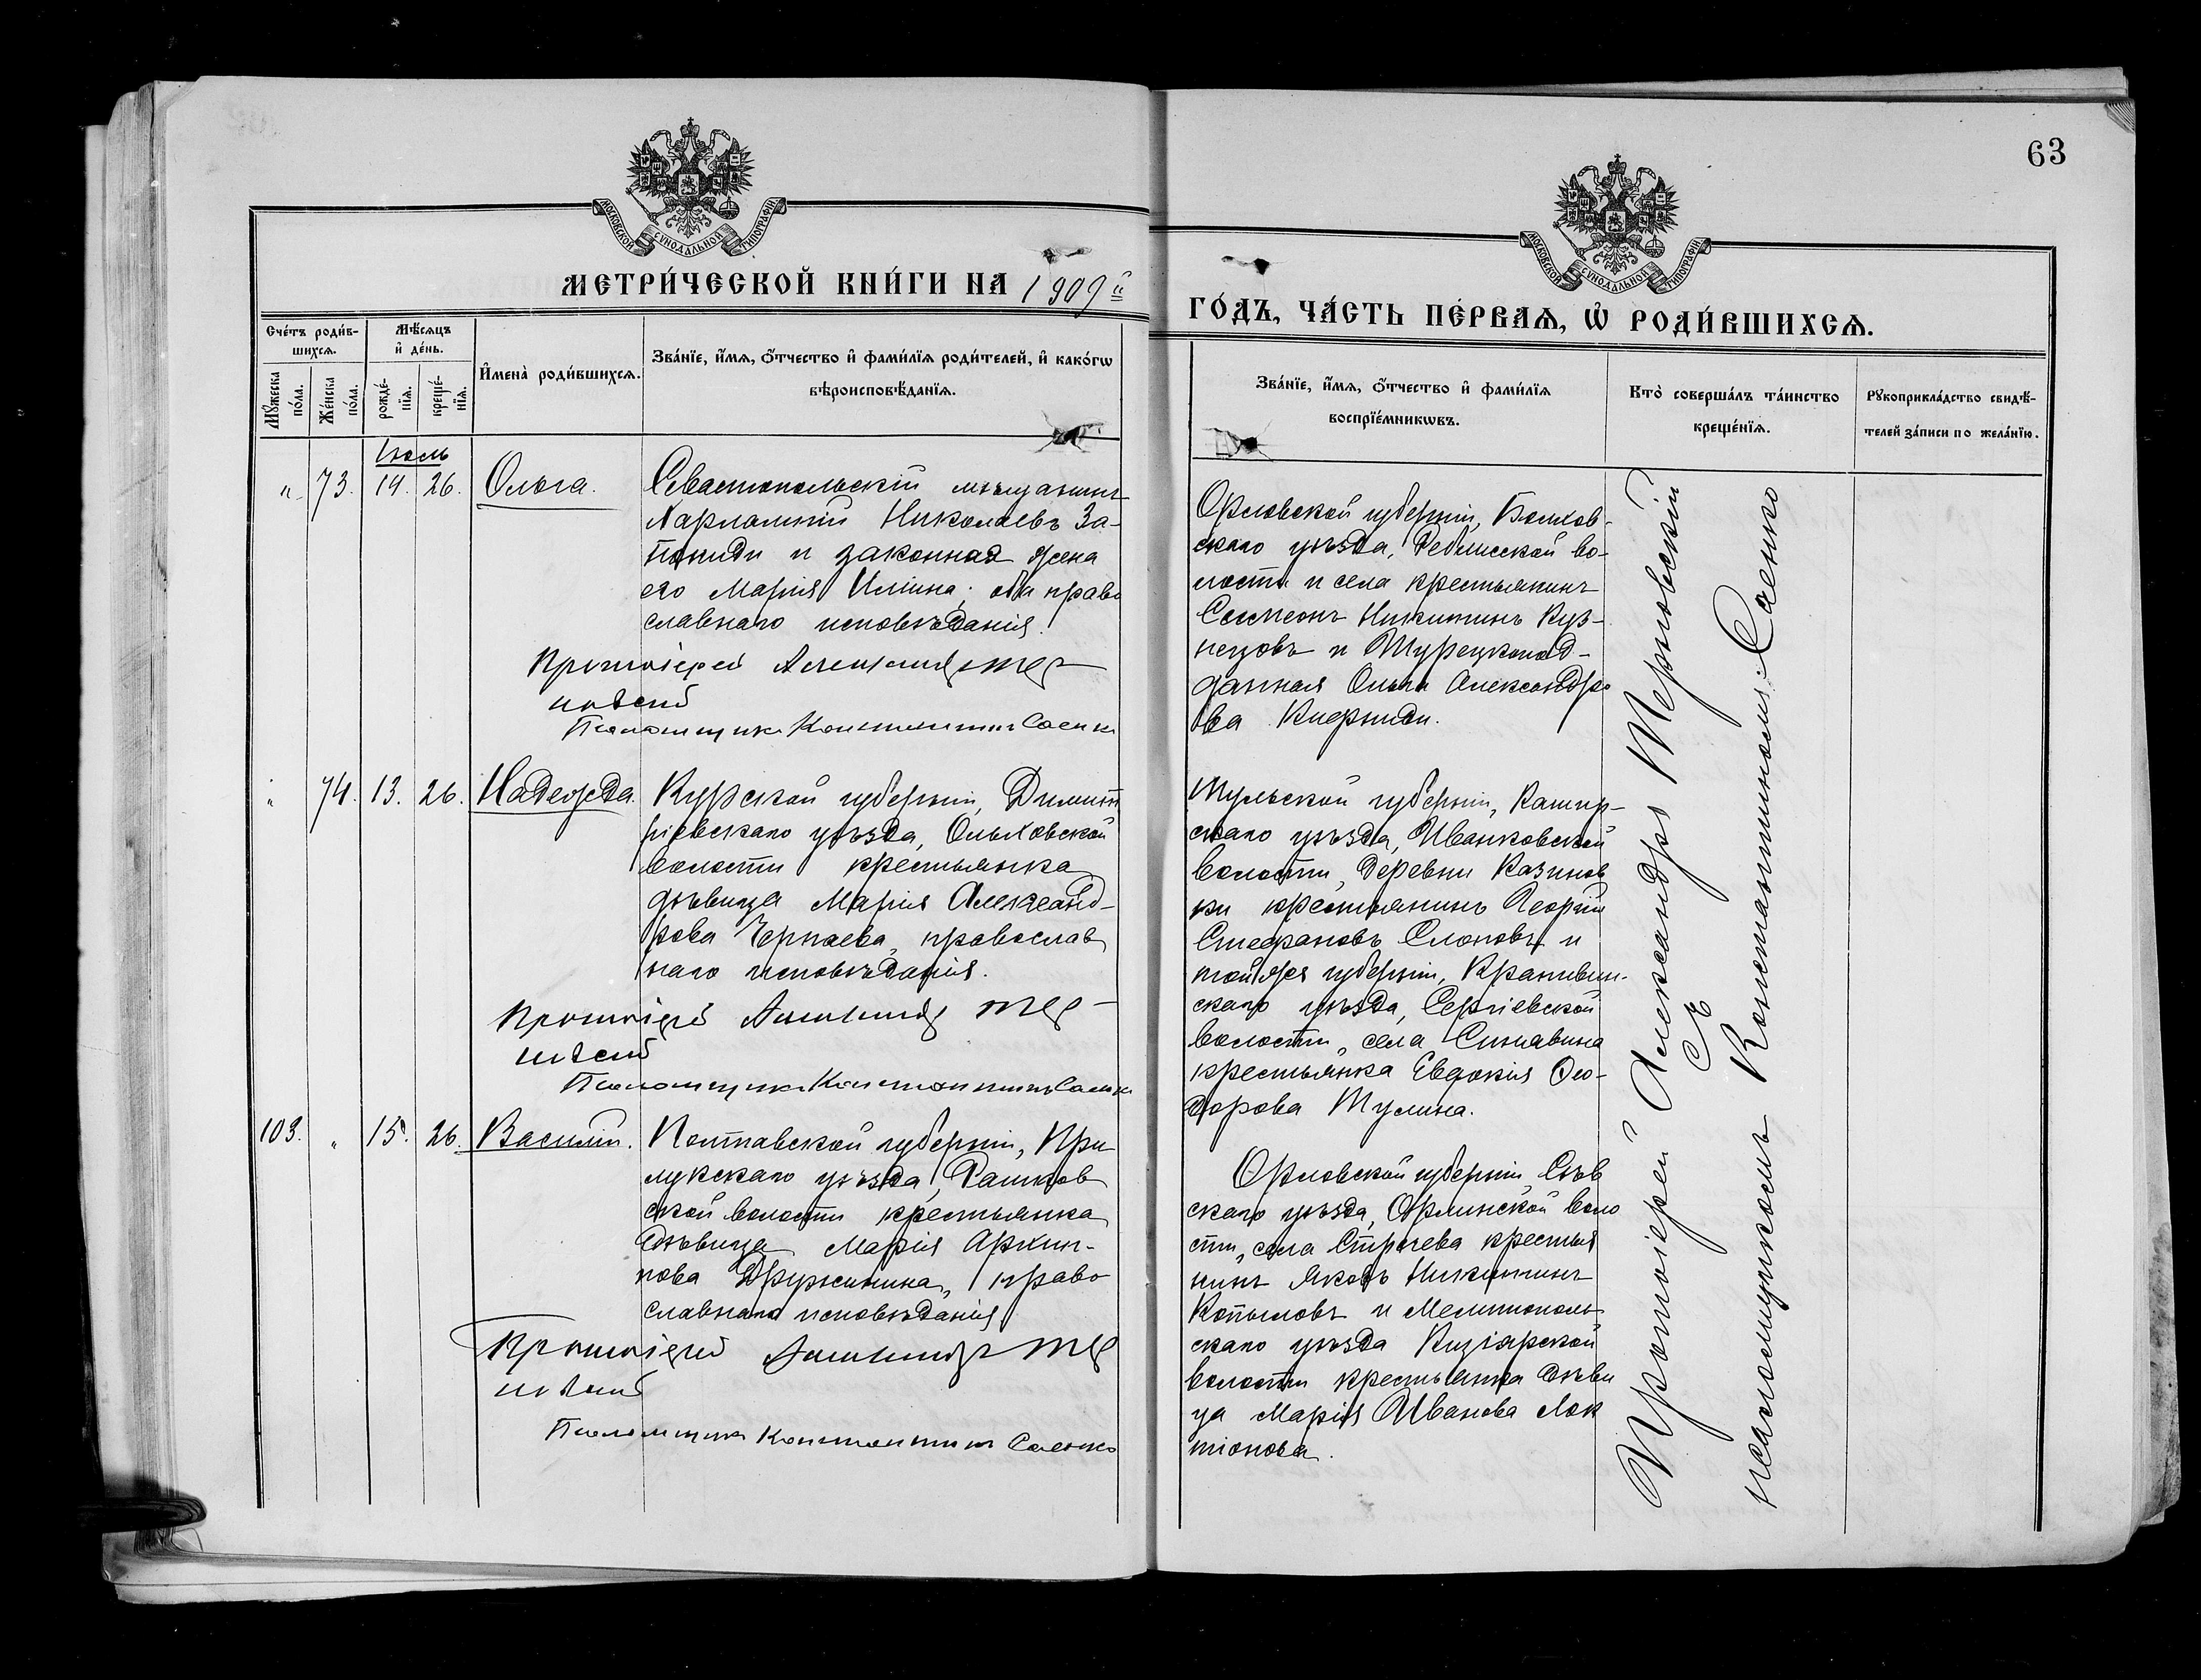 63
МОСКОВСКОЙ СѴНОДАЛЬНОЙ ТИПОГРАФІИ
МОСКОВСКОЙ СѴНОДАЛЬНОЙ ТИПОГРАФІИ
МЕТРИ́ЧЕСКОЙ КНИ́ГИ НА 1909й
ГО́ДЪ, ЧА́СТЬ ПЕ́РВАѦ, Ѡ҆ РОДИ́ВШИХСѦ.
Сче́тъ роди́в-
шихсѧ.
Мꙋ́жеска по́ла.
Же́нска по́ла.
Мѣ́сѧцъ
и҆ де́нь.
рожде́-
нїѧ.
креще́-
нїѧ.
И҆мена̀ роди́вшихсѧ.
Зва́нїе, и҆́мѧ, ѻ҆́тчество и҆ фами́лїѧ роди́телей, и҆ како́гѡ
вѣроисповѣ́данїѧ.
Зва́нїе, и҆́мѧ, ѻ҆́тчество и҆ фами́лїѧ
воспрїе́мникѡвъ.
Кто̀ соверша́лъ та́инство
креще́нїѧ.
Рꙋкоприкла́дство свидѣ́-
телей за́писи по жела́нїю.
Іюль
" 73. 14. 26. Ольга.
Севастопольскій мѣщанинъ
Харлампій Николаевъ За-
и законная жена
его Марія Иліина; оба право
славнаго исповѣданія.
Протоіерей Александръ Тер-
новскій
Псаломщикъ Константинъ Саенко
Орловской губерніи, Болхов-
скаго уѣзда, во-
лости и села крестьянинъ
Симеонъ Никитинъ Куз-
нецовъ и Турецкопод-
данная Ольга Александро
ва
" 74. 13. 26. Надежда.
Курской губерніи, Димит
ріевскаго уѣзда, Ольховской
волости крестьянка
дѣвица Марія Александ-
рова Чернаева, православ
наго исповѣданія.
Протоіерей Александръ Тер-
новскій
Псаломщикъ Константинъ Саенко
Тульской губерніи, Кашир-
скаго уѣзда, Иванковской
волости, деревни Казинов
ки крестьянинъ Георгій
Стефановъ Слоновъ и
той же губерніи, Крапивин-
скаго уѣзда, Сергіевской
волости, села Синявина
крестьянка Евдокія Ѳео-
дорова Тулина.
103. " 15. 26. Василій.
Полтавской губерніи, При
лукскаго уѣзда, Рашков
ской волости крестьянка
дѣвица Марія Архип-
пова Дружинина, право
славнаго исповѣданія
Протоіерей Александръ Тер
новскій
Псаломщикъ Константинъ Саенко
Орловской губерніи, Сѣв
скаго уѣзда, Орлинской воло
сти, села Стрѣчева крестья
нинъ Яковъ Никитинъ
Копыловъ и Мелитополь
скаго уѣзда Кизіярской
волости крестьянка дѣви
ца Марія Иванова Лок
тіонова.
Протоіерей Александръ Терновскій
съ
псаломщикомъ Константиномъ Саенко